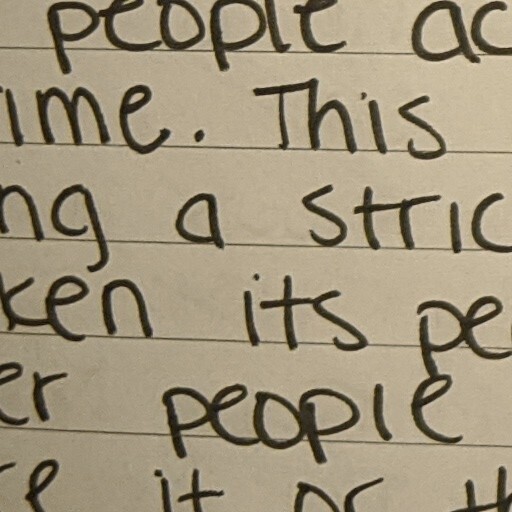 people ac
ime. This
ng a stric
ken its pe
er people
re it or th